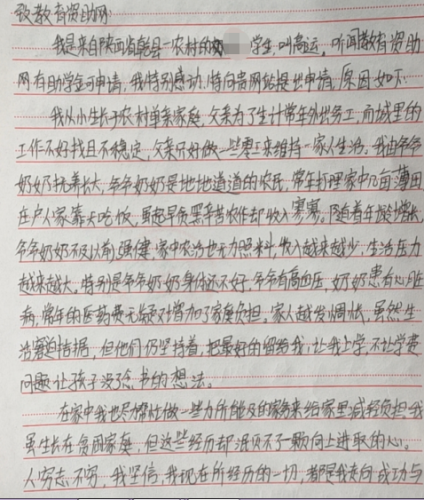 致教育资助网:
我是来自陕西省乾县一农村的 学生,叫高运,听闻教育资助
网有助学金可申请,我特别感动,特向贵网站提出申请,原因如下:
我从小生长于农村单亲家庭,父亲为了生计常年外出务工,而城里的
工作不好找且不稳定,父亲只好做一些零工来维持一家人生活,我由爷爷
奶奶抚养长大,爷爷奶奶是地地道道的农民,常年打理家中几亩薄田
在户人家靠天吃饭,虽起早贪黑辛苦农作却收入寥寥,随着年龄增长,
爷爷奶奶不及以前强健,家中农活也无力照料,收入越来越少,生活压力
越来越大,特别是爷爷奶奶身体还不好,爷爷有高血压,奶奶患有心脏
病,常年的医药费无疑又增加了家庭负担,家人越发惆怅,虽然生
活窘迫拮据,但他们仍坚持着,把最好的留给我,让我上学,不让学费
问题让孩子没了念书的想法。
在家中我也尽帮忙做一些力所能及的家务来给家里减轻负担,我
虽生长在贫困家庭,但这些经历却泯灭不了一颗向上进取的心。
人穷志不穷,我坚信,我现在所经历的一切,都是我走向成功与